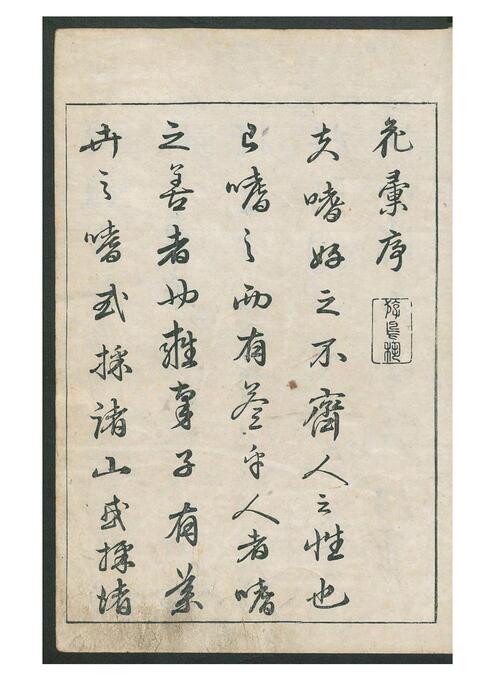 花彙序
夫嗜好之不齊人之性也
已嗜之而有益乎人者嗜
之善者也雖子有葉
卉之嗜或採諸山或採諸